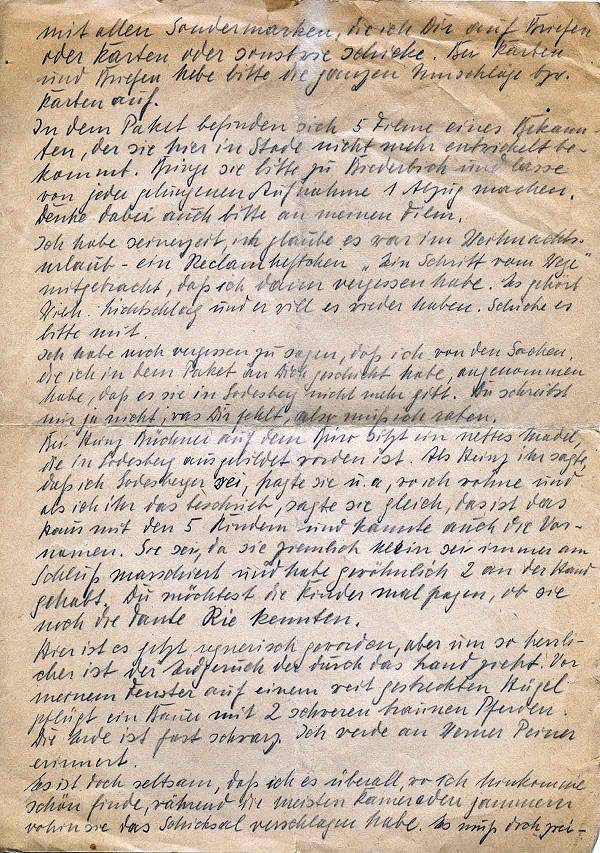 mit allen Sondermarken, die ich Dir auf Briefen
oder Karten oder sonstwie schicke. Bei Karten
und Briefen hebe bitte die ganzen Umschläge bzw.
Karten auf.
In dem Paket befinden sich 5 Filme eines Bekann-
ten, der sie hier in Stade nicht mehr entwickelt be-
kommt. Bringe sie bitte zu und lasse
von jeder gelungenen Aufnahme 1 Abzug machen.
Denke dabei auch bitte an meinen Film.
Ich habe seinerzeit, ich glaube es war im Weihnachts-
urlaub - ein Reclamheftchen „Ein Schritt vom Wege"
mitgebracht, daß ich dann vergessen habe. Es gehört
und er will es wieder haben. Schicke es
bitte mit.
Ich habe noch vergessen zu sagen, daß ich von den Sachen,
die ich in dem Paket an Dich geschickt habe, angenommen
habe, daß es sie in Godesberg nicht mehr gibt. Du schreibst
mir ja nicht, was Dir fehlt, also muß ich raten.
Bei Heinz Büchner auf dem Büro sitzt ein nettes Mädel,
die in Godesberg ausgebildet worden ist. Als Heinz ihr sagte,
daß ich Godesberger sei, fragte sie u.a. wo ich wohne und
als ich ihr das beschrieb, sagte sie gleich, das ist das
Haus mit den 5 Kindern und kannte auch die Vor-
namen. Sie sei, da sie ziemlich klein sei immer am
Schluß marschiert und habe gewöhnlich 2 an der Hand
gehabt. Du möchtest die Kinder mal fragen, ob sie
noch die Tante Rie kennten.
Hier ist es jetzt regnerisch geworden, aber um so herrli-
cher ist der Erdgeruch der durch das Land zieht. Vor
meinem Fenster auf einem weit gestreckten Hügel
pflügt ein Bauer mit 2 schweren braunen Pferden.
Die Erde ist fast schwarz. Ich werde an Werner Peiner
erinnert.
Es ist doch seltsam, daß ich es überall, wo ich hinkomme
schön finde, während die meisten Kameraden jammern
wohin sie das Schicksal verschlagen habe. Es muß doch zwei-